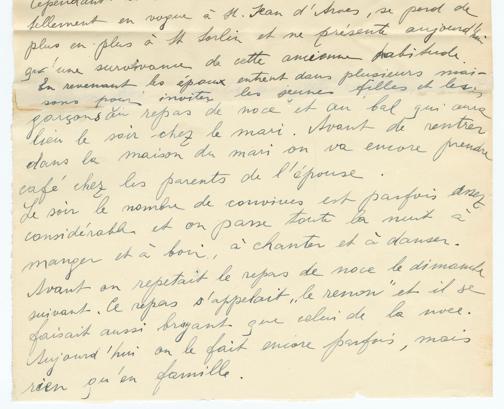 Cependant
tellement en vogue à St. Jean d'Arves, se perd de
plus en plus à St Sorlin et ne présente aujourd'hui
qu'une survivance de cette ancienne habitude.
En revenant les époux entrent dans plusieurs mai-
sons pour inviter les jeunes filles et les
garçons au repas de noce et au bal qui aura
lieu le soir chez le mari. Avant de rentrer
dans la maison du mari on va encore prendre
café chez les parents de l'épouse.
Le soir le nombre de convives est parfois assez
considérable et on passe toute la nuit à
manger et à boir, à chanter et à danser.
Avant on repetait le repas de noce le dimanche
suivant. Ce repas s'appelait "le renon" et il se
faisait aussi bruyant que celui de la noce.
Aujourd'hui on le fait encore parfois, mais
rien qu'en famille.